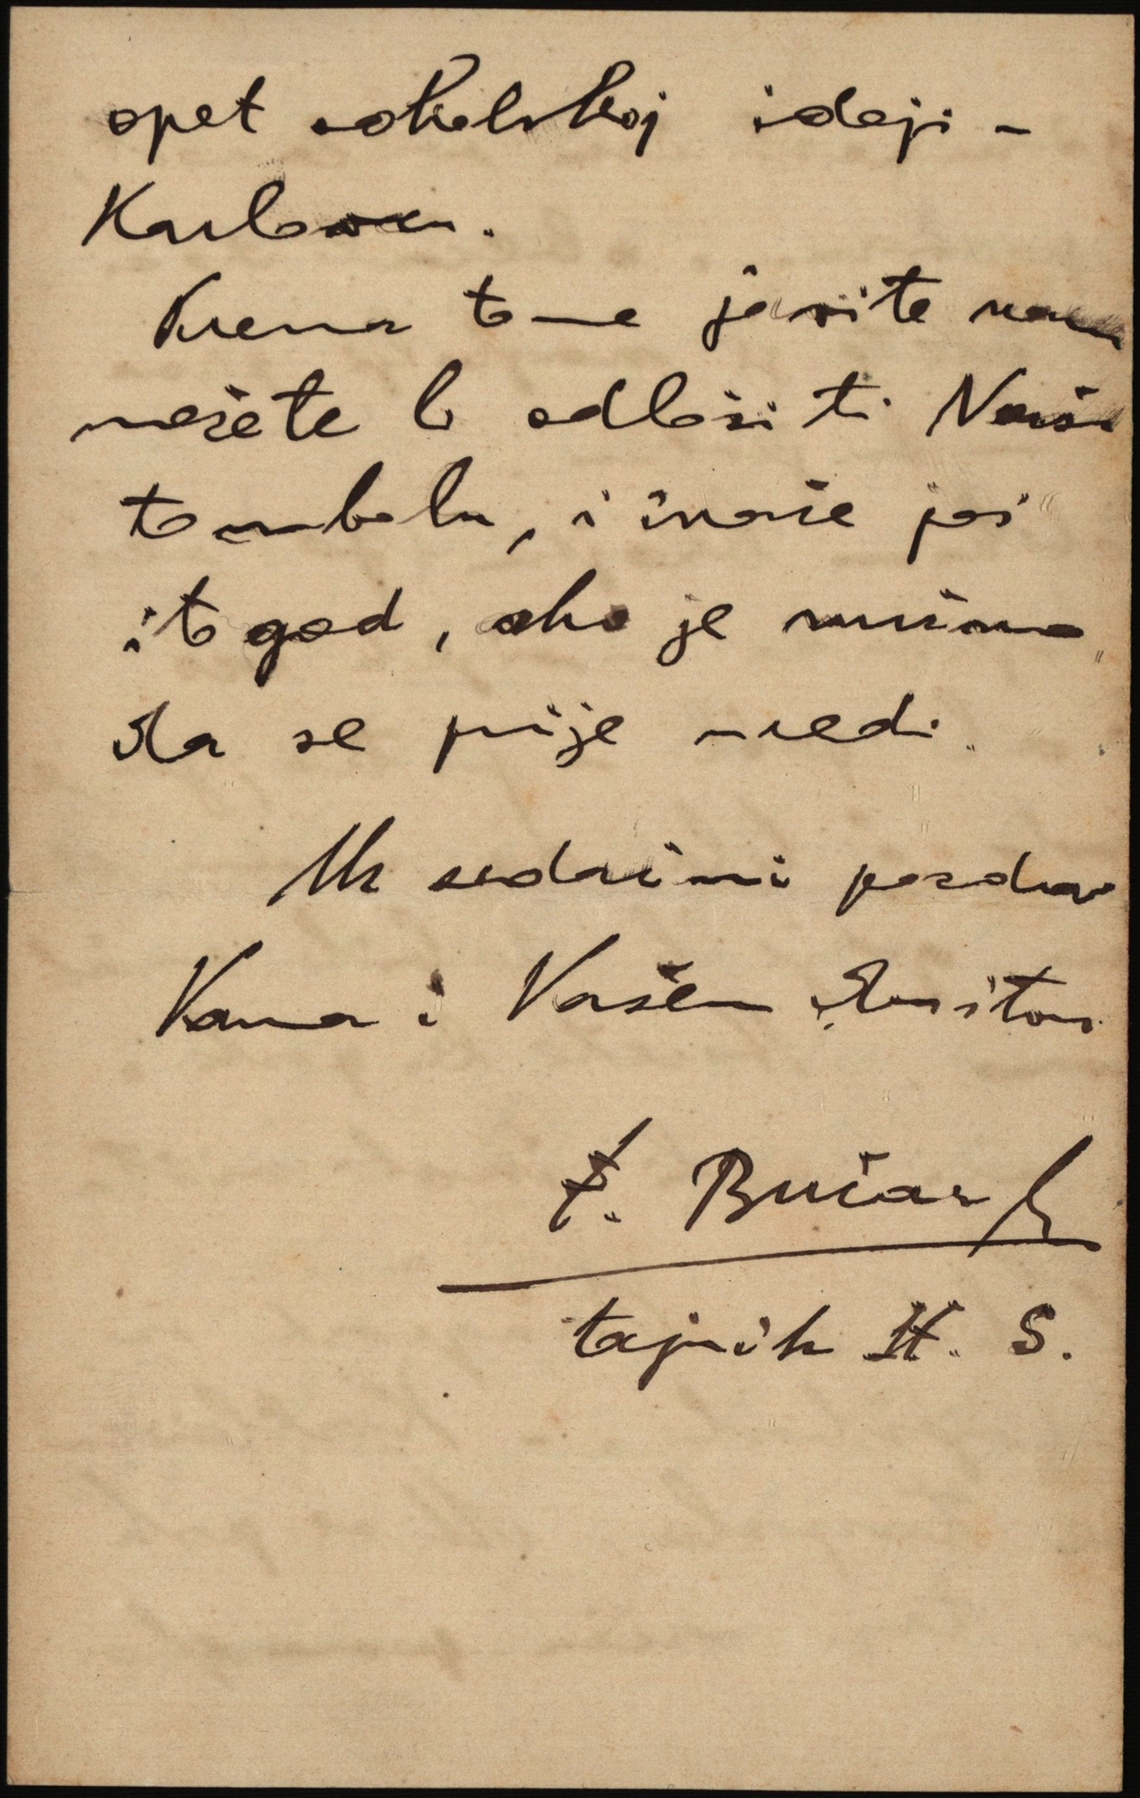 opet sokolskoj ideji -
Karlovcu.
Prema tome javite nam
možete l' odložiti Vašu
tombolu, i inače još
što god, ako je nužno
da se prije uredi.
Uz srdačni pozdrav
Vama i Vašem
F. Bučar
tajnik H. S.